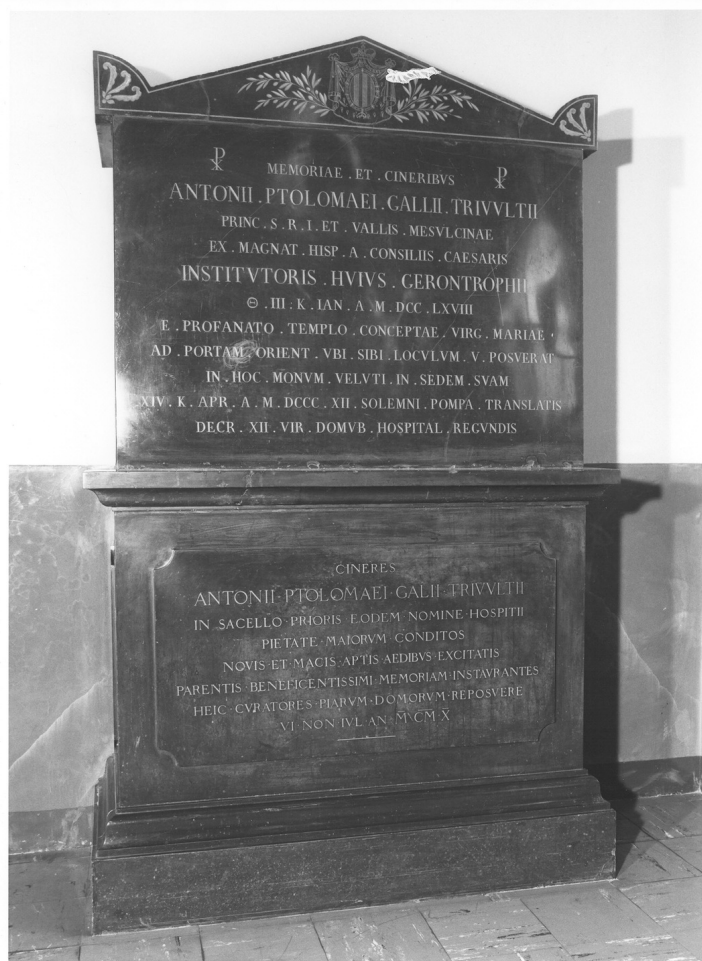 MEMORIAE . ET . CINERIBVS
ANTONII . PTOLOMAEI . GALLII . TRIVVLTII
PRINC . S . R . I . ET . VALLIS . MESVLCINAE
EX . MAGNAT . HISP . A . CONSILIIS . CAESARIS
INSTITVTORIS . HVIVS . GERONTROPHII
. III . K . IAN . A . M . DCC . LXVIII
E . PROFANATO . TEMPLO . CONCEPTAE . VIRG . MARIAE .
AD . PORTAM . ORIENT . VBI . SIBI . LOCVLVM . V . POSVERAT
IN . HOC . MONVM . VELVTI . IN . SEDEM . SVAM
XIV . K . APR . A . M . DCCC . XII . SOLEMNI . POMPA . TRANSLATIS
DECR . XII . VIR . DOMVB . HOSPITAL . REGVNDIS
CINERES
ANTONII · PTOLOMAEI · GALII · TRIVVLTII
IN SACELLO · PRIORIS EODEM · NOMINE · HOSPITII
PIETATE · MAIORVM CONDITOS
NOVIS · ET · MAGIS · APTIS AEDIBVS EXCITATIS
PARENTIS · BENEFICENTISSIMI · MEMORIAM · INSTAVRANTES
HEIC · CVRATORES · PIARVM · DOMORVM · REPOSVERE
VI · NON · IVL · AN · MCM X